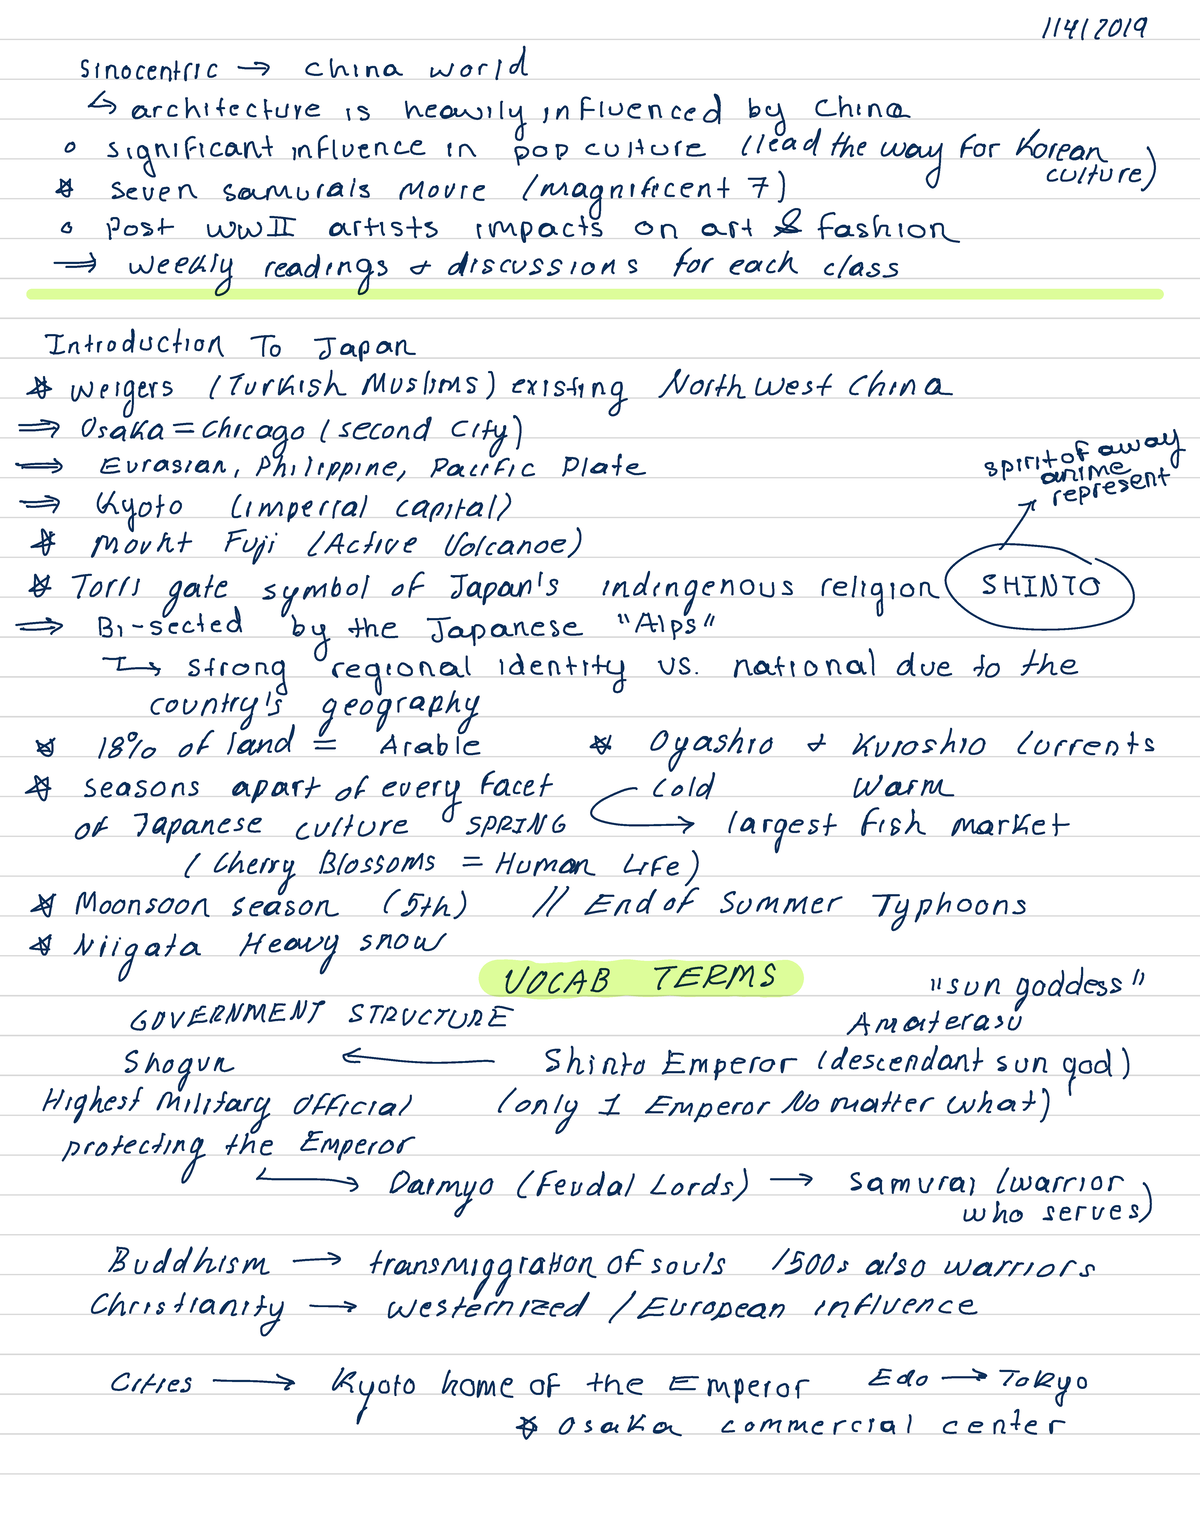 1/4/2019
Sinocentric → China world
↳ architecture is heavily influenced by China
o significant influence in pop culture (lead the way for Korean culture)
☆ Seven samurais Movie (magnificent 7)
o Post WWII artists impacts on art & fashion
⇒ weekly readings & discussions for each class
Introduction To Japan
☆ Weigers (Turkish Muslims) existing North West China
⇒ Osaka = Chicago (second City)
⇒ Eurasian, Philippine, Pacific Plate
⇒ Kyoto (imperial capital)
☆ Mount Fuji (Active Volcanoe)
spirit of away anime represent
☆ Torii gate symbol of Japan's indingenous religion SHINTO
⇒ Bi-sected by the Japanese "Alps"
↳ strong regional identity vs. national due to the
country's geography
☆ 18% of land = Arable
☆ Oyashio & Kuroshio Currents
Cold Warm
→ largest fish market
☆ seasons apart of every facet
of Japanese culture SPRING
(Cherry Blossoms = Human Life)
☆ Moonsoon season (5th) // End of Summer Typhoons
☆ Niigata Heavy snow
VOCAB TERMS
GOVERNMENT STRUCTURE
"sun goddess"
Amaterasu
Shogun ← Shinto Emperor (descendant sun god)
Highest Military Official (only 1 Emperor No matter what)
protecting the Emperor
↳ Daimyo (Feudal Lords) → Samurai (warrior
who serves)
Buddhism → transmiggration of souls 1500s also warriors
Christianity → westernized / European influence
Cities → Kyoto home of the Emperor Edo → Tokyo
☆ Osaka commercial center